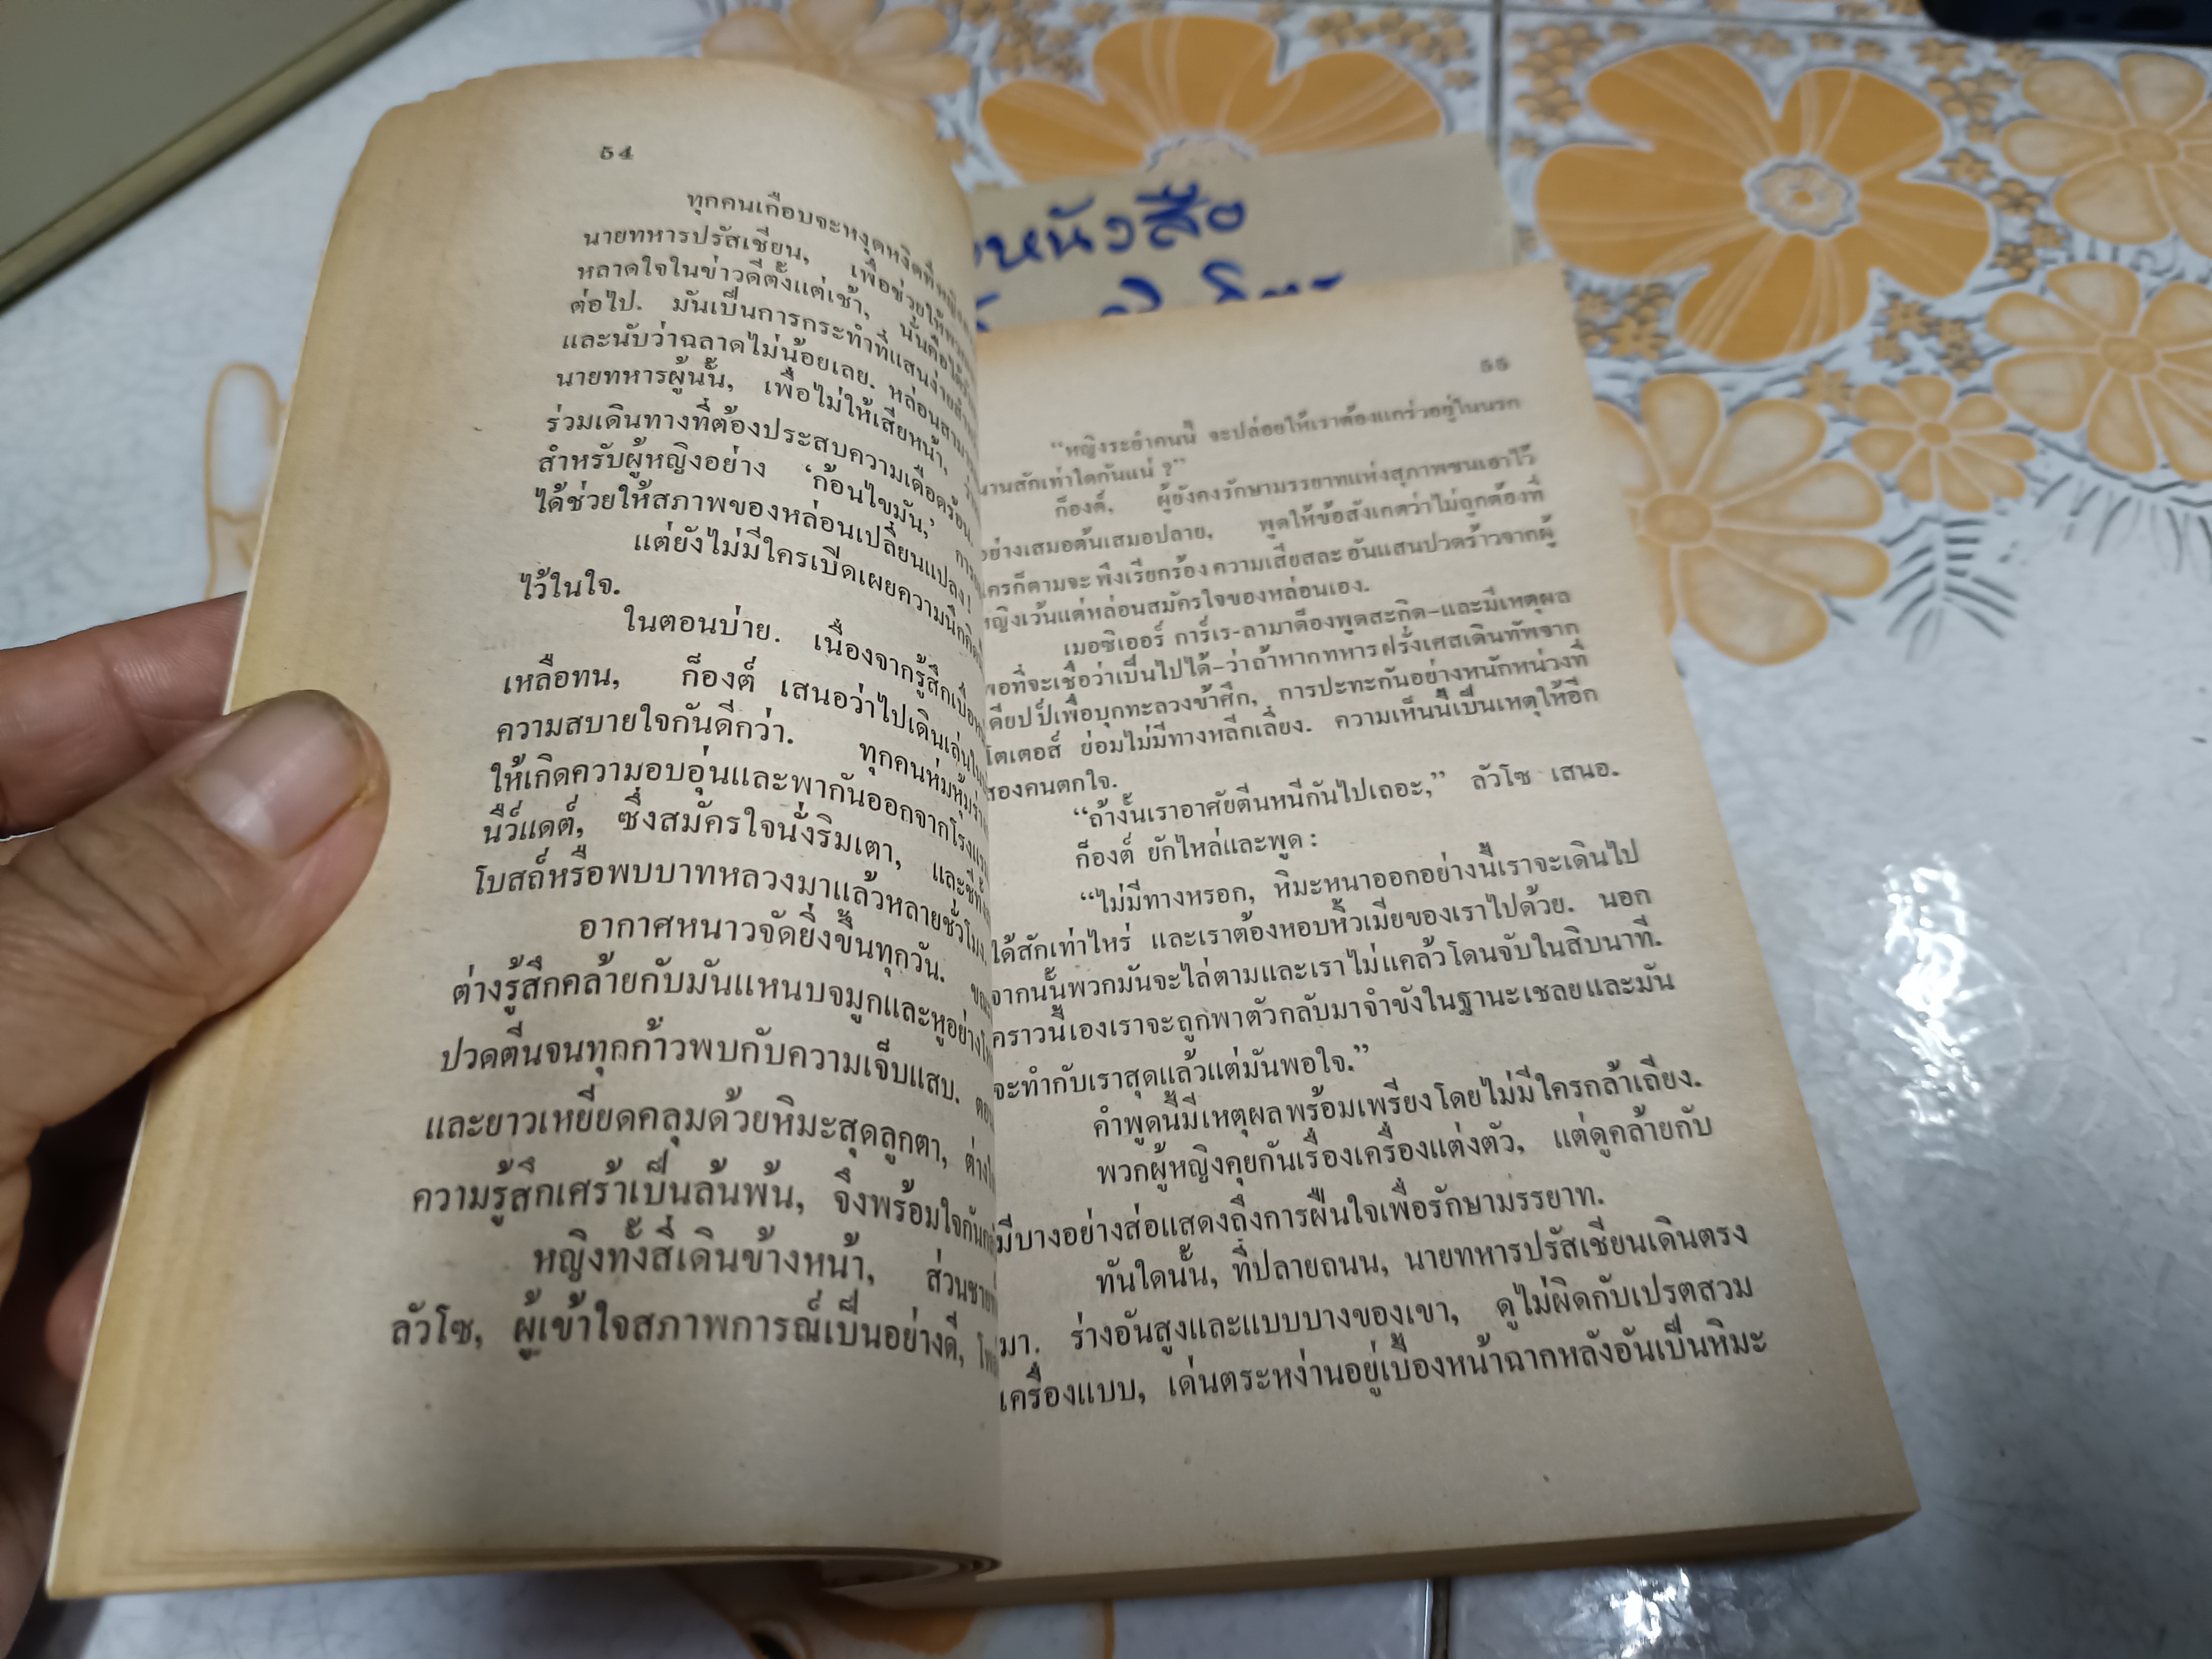 54
ทุกคนเกือบจะหงุดหงิดที่หญิง
นายทหารปรัสเซียน, เพื่อช่วยให้พวก
หลาดใจในข่าวดีตั้งแต่เช้า, นั่นคือได้
ต่อไป. มันเป็นการกระทำที่แสนง่าย
และนับว่าฉลาดไม่น้อยเลย. หล่อนสามา
นายทหารผู้นั้น, เพื่อไม่ให้เสียหน้า, ว่า
ร่วมเดินทางที่ต้องประสบความเดือดร้อน.
สำหรับผู้หญิงอย่าง ‘ก้อนไขมัน,’ การ
ได้ช่วยให้สภาพของหล่อนเปลี่ยนแปลง!
แต่ยังไม่มีใครเปิดเผยความนึกคิด
ไว้ในใจ.
ในตอนบ่าย. เนื่องจากรู้สึกเบื่อ
เหลือทน, ก็องต์ เสนอว่าไปเดินเล่นใน
ความสบายใจกันดีกว่า. ทุกคนห่มหุ้มร่า
ให้เกิดความอบอุ่นและพากันออกจากโรงแร
นืว์แดต์, ซึ่งสมัครใจนั่งริมเตา, และชีทั้
โบสถ์หรือพบบาทหลวงมาแล้วหลายชั่วโมง.
อากาศหนาวจัดยิ่งขึ้นทุกวัน. ขณะ
ต่างรู้สึกคล้ายกับมันแหนบจมูกและหูอย่าง
ปวดตีนจนทุกก้าวพบกับความเจ็บแสบ. ตอน
และยาวเหยียดคลุมด้วยหิมะสุดลูกตา, ต่าง
ความรู้สึกเศร้าเป็นล้นพ้น, จึงพร้อมใจกัน
หญิงทั้งสี่เดินข้างหน้า, ส่วนชาย
ลัวโซ, ผู้เข้าใจสภาพการณ์เป็นอย่างดี,
หนังสือ
55
“หญิงระยำคนนี้ จะปล่อยให้เราต้องแกร่วอยู่ในนรก
นานสักเท่าใดกันแน่ ?”
ก็องต์, ผู้ยังคงรักษามรรยาทแห่งสุภาพชนเอาไว้
อย่างเสมอต้นเสมอปลาย, พูดให้ข้อสังเกตว่าไม่ถูกต้องที่
ใครก็ตามจะ พึงเรียกร้อง ความเสียสละ อันแสนปวดร้าวจากผู้
หญิงเว้นแต่หล่อนสมัครใจของหล่อนเอง.
เมอซิเออร์ การ์เร-ลามาด็องพูดสะกิด-และมีเหตุผล
พอที่จะเชื่อว่าเป็นไปได้-ว่าถ้าหากทหาร ฝรั่งเศสเดินทัพจาก
ดียปป์เพื่อบุกทะลวงข้าศึก, การปะทะกันอย่างหนักหน่วงที่
โตเตอส์ ย่อมไม่มีทางหลีกเลี่ยง. ความเห็นนี้เป็นเหตุให้อีก
สองคนตกใจ.
“ถ้างั้นเราอาศัยตีนหนีกันไปเถอะ,” ลัวโซ เสนอ.
ก็องต์ ยักไหล่และพูด :
“ไม่มีทางหรอก, หิมะหนาออกอย่างนี้เราจะเดินไป
ได้สักเท่าไหร่ และเราต้องหอบหิ้วเมียของเราไปด้วย. นอก
จากนั้นพวกมันจะไล่ตามและเราไม่แคล้วโดนจับในสิบนาที.
คราวนี้เองเราจะถูกพาตัวกลับมาจำขังในฐานะเชลยและมัน
จะทำกับเราสุดแล้วแต่มันพอใจ.”
คำพูดนี้มีเหตุผลพร้อมเพรียงโดยไม่มีใครกล้าเถียง.
พวกผู้หญิงคุยกันเรื่องเครื่องแต่งตัว, แต่ดูคล้ายกับ
มีบางอย่างส่อแสดงถึงการฝืนใจเพื่อรักษามรรยาท.
ทันใดนั้น, ที่ปลายถนน, นายทหารปรัสเซียนเดินตรง
มา. ร่างอันสูงและแบบบางของเขา, ดูไม่ผิดกับเปรตสวม
เครื่องแบบ, เด่นตระหง่านอยู่เบื้องหน้าฉากหลังอันเป็นหิมะ